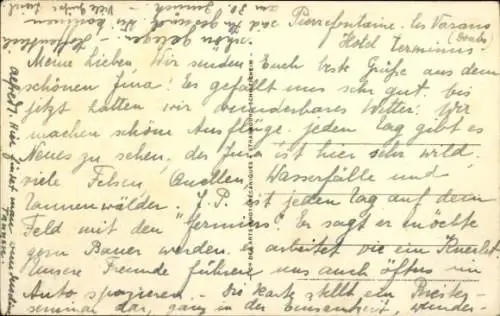 Pierrefontaine. les Varans
(Doubs)
Hotel Terminus.
Meine Lieben. Wir senden Euch beste Grüße aus dem
schönen Jura! Es gefällt uns sehr gut. bis
jetzt hatten wir wunderbares Wetter. Wir
machen schöne Ausflüge. jeden Tag gibt es
Neues zu sehen, der Jura ist hier sehr wild,
viele Felsen, Quellen, Wasserfälle und
Tannenwälder. J.P. ist jeden Tag auf dem
Feld mit den "fermiers". Er sagt er möchte
gern Bauer werden. er arbeitet wie ein Knecht.
Unsere Freunde führen uns auch öfters im
Auto spazieren - die Karte stellt ein Priester-
seminar dar, ganz in der Einsamkeit, wunder-
schön gelegen. -
Hoffentlich
am 30. zurück - Viele Grüße
Alfred, Hier findet man wunder
Tannen